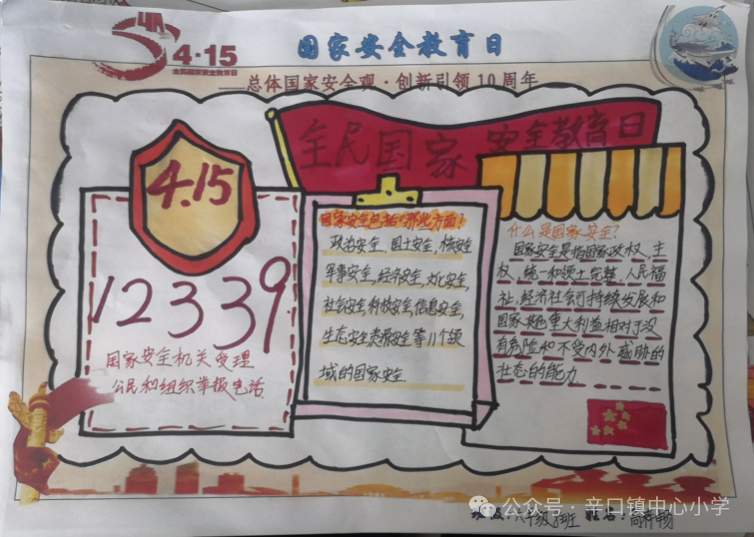 4·15
全民国家安全教育日
国家安全教育日
总体国家安全观·创新引领10周年
全民国家安全教育日
4.15
12339
国家安全机关受理
公民和组织举报电话
国家安全包括哪些方面?
政治安全、国土安全、核安全
军事安全,经济安全,文化安全,
社会安全,科技安全,信息安全,
生态安全资源安全等11个领
域的国家安全.
什么是国家安全?
国家安全是指国家政权,主
权、统一和领土完整、人民福
祉、经济社会可持续发展和
国家其他重大利益相对于没
有危险和不受内外威胁的
状态的能力.
公众号·辛口镇中心小学
班级:六年级3班 姓名:高梓畅